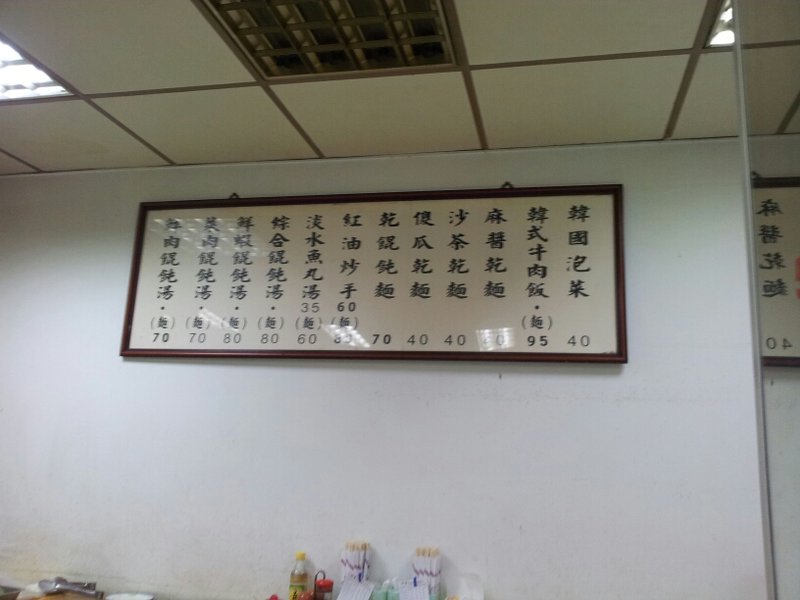 韓國泡菜 40
韓式牛肉飯・(麵) 95
麻醬乾麵
沙茶乾麵 40
傻瓜乾麵 40
乾餛飩麵 70
紅油炒手 60 (麵)
淡水魚丸湯 35 (麵) 60
綜合餛飩湯・(麵) 80
鮮蝦餛飩湯・(麵) 80
菜肉餛飩湯・(麵) 70
肉餛飩湯・(麵) 70
麻醬乾麵
40